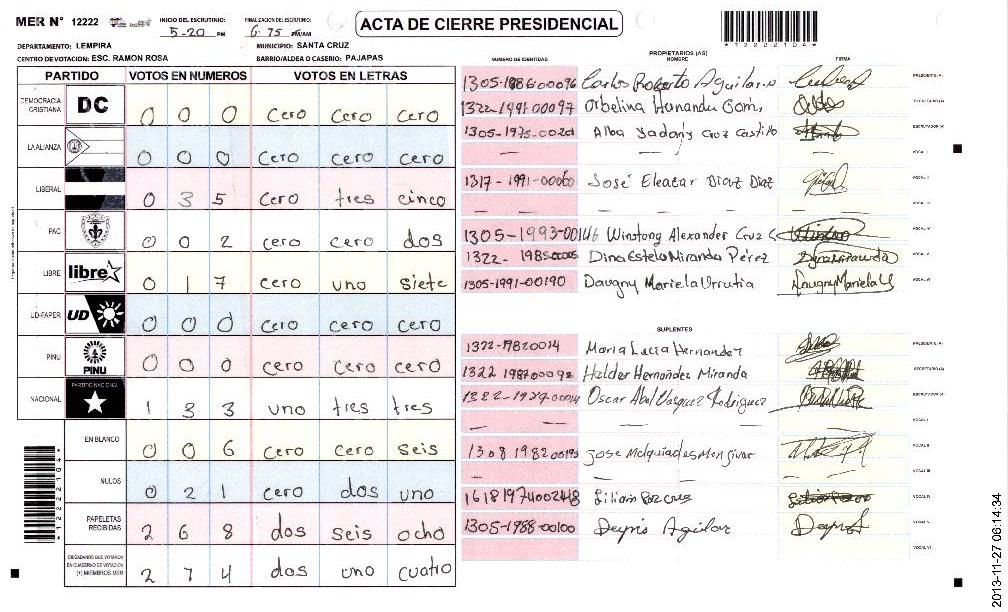 MER N° 12222
INICIO DEL ESCRUTINIO: 5-20 PM
FINALIZACION DEL ESCRUTINIO: 6:75 PM/AM
ACTA DE CIERRE PRESIDENCIAL
*12222104*
DEPARTAMENTO: LEMPIRA
MUNICIPIO: SANTA CRUZ
CENTRO DE VOTACION: ESC. RAMON ROSA
BARRIO/ALDEA O CASERIO: PAJAPAS
PARTIDO VOTOS EN NUMEROS VOTOS EN LETRAS
DEMOCRACIA CRISTIANA DC 0 0 0 Cero Cero Cero
LA ALIANZA 0 0 0 Cero cero cero
LIBERAL 0 3 5 Cero tres cinco
PAC 0 0 2 cero cero dos
LIBRE libre 0 1 7 cero uno siete
UD-FAPER UD 0 0 0 Cero cero cero
PINU PINU 0 0 0 cero cero cero
NACIONAL PARTIDO NACIONAL 1 3 3 uno tres tres
EN BLANCO 0 0 6 cero cero seis
NULOS 0 2 1 cero dos uno
PAPELETAS RECIBIDAS 2 6 8 dos seis ocho
CIUDADANOS QUE VOTARON EN CUADERNO DE VOTACION (+) MIEMBROS MER 2 7 4 dos uno cuatro
*12222104*
PROPIETARIOS (AS)
NUMERO DE IDENTIDAD NOMBRE FIRMA
1305-1986-00096 Carlos Roberto Aguilar PRESIDENTE (A)
1322-1991-00097 Orbelina SECRETARIO (A)
1305-1975-0020 Alba Yadony Cruz Castillo ESCRUTADOR (A)
— — — VOCAL I
1317-1991-00060 José Eleazar Diaz Diaz VOCAL II
— — — VOCAL III
1305-1993-00146 Winstong Alexander Cruz VOCAL IV
1322-1985-00005 Dina Estela Miranda Pérez VOCAL V
1305-1991-00190 Daugny Mariela Urrutia Daugny Mariela U VOCAL VI
SUPLENTES
1322-19820014 Maria Lucia Hernandez PRESIDENTE (A)
1322 198700092 Helder Hernández Miranda SECRETARIO (A)
Oscar Abel Vasquez Rodriguez ESCRUTADOR (A)
— — — VOCAL I
1308 1982 00195 Jose Melquiades Menjivar VOCAL II
— — — VOCAL III
1618197400248 Lilian Paz Cruz VOCAL IV
1305-1988-00100 Deyris Aguilar VOCAL V
VOCAL VI
2013-11-27 06:14:34